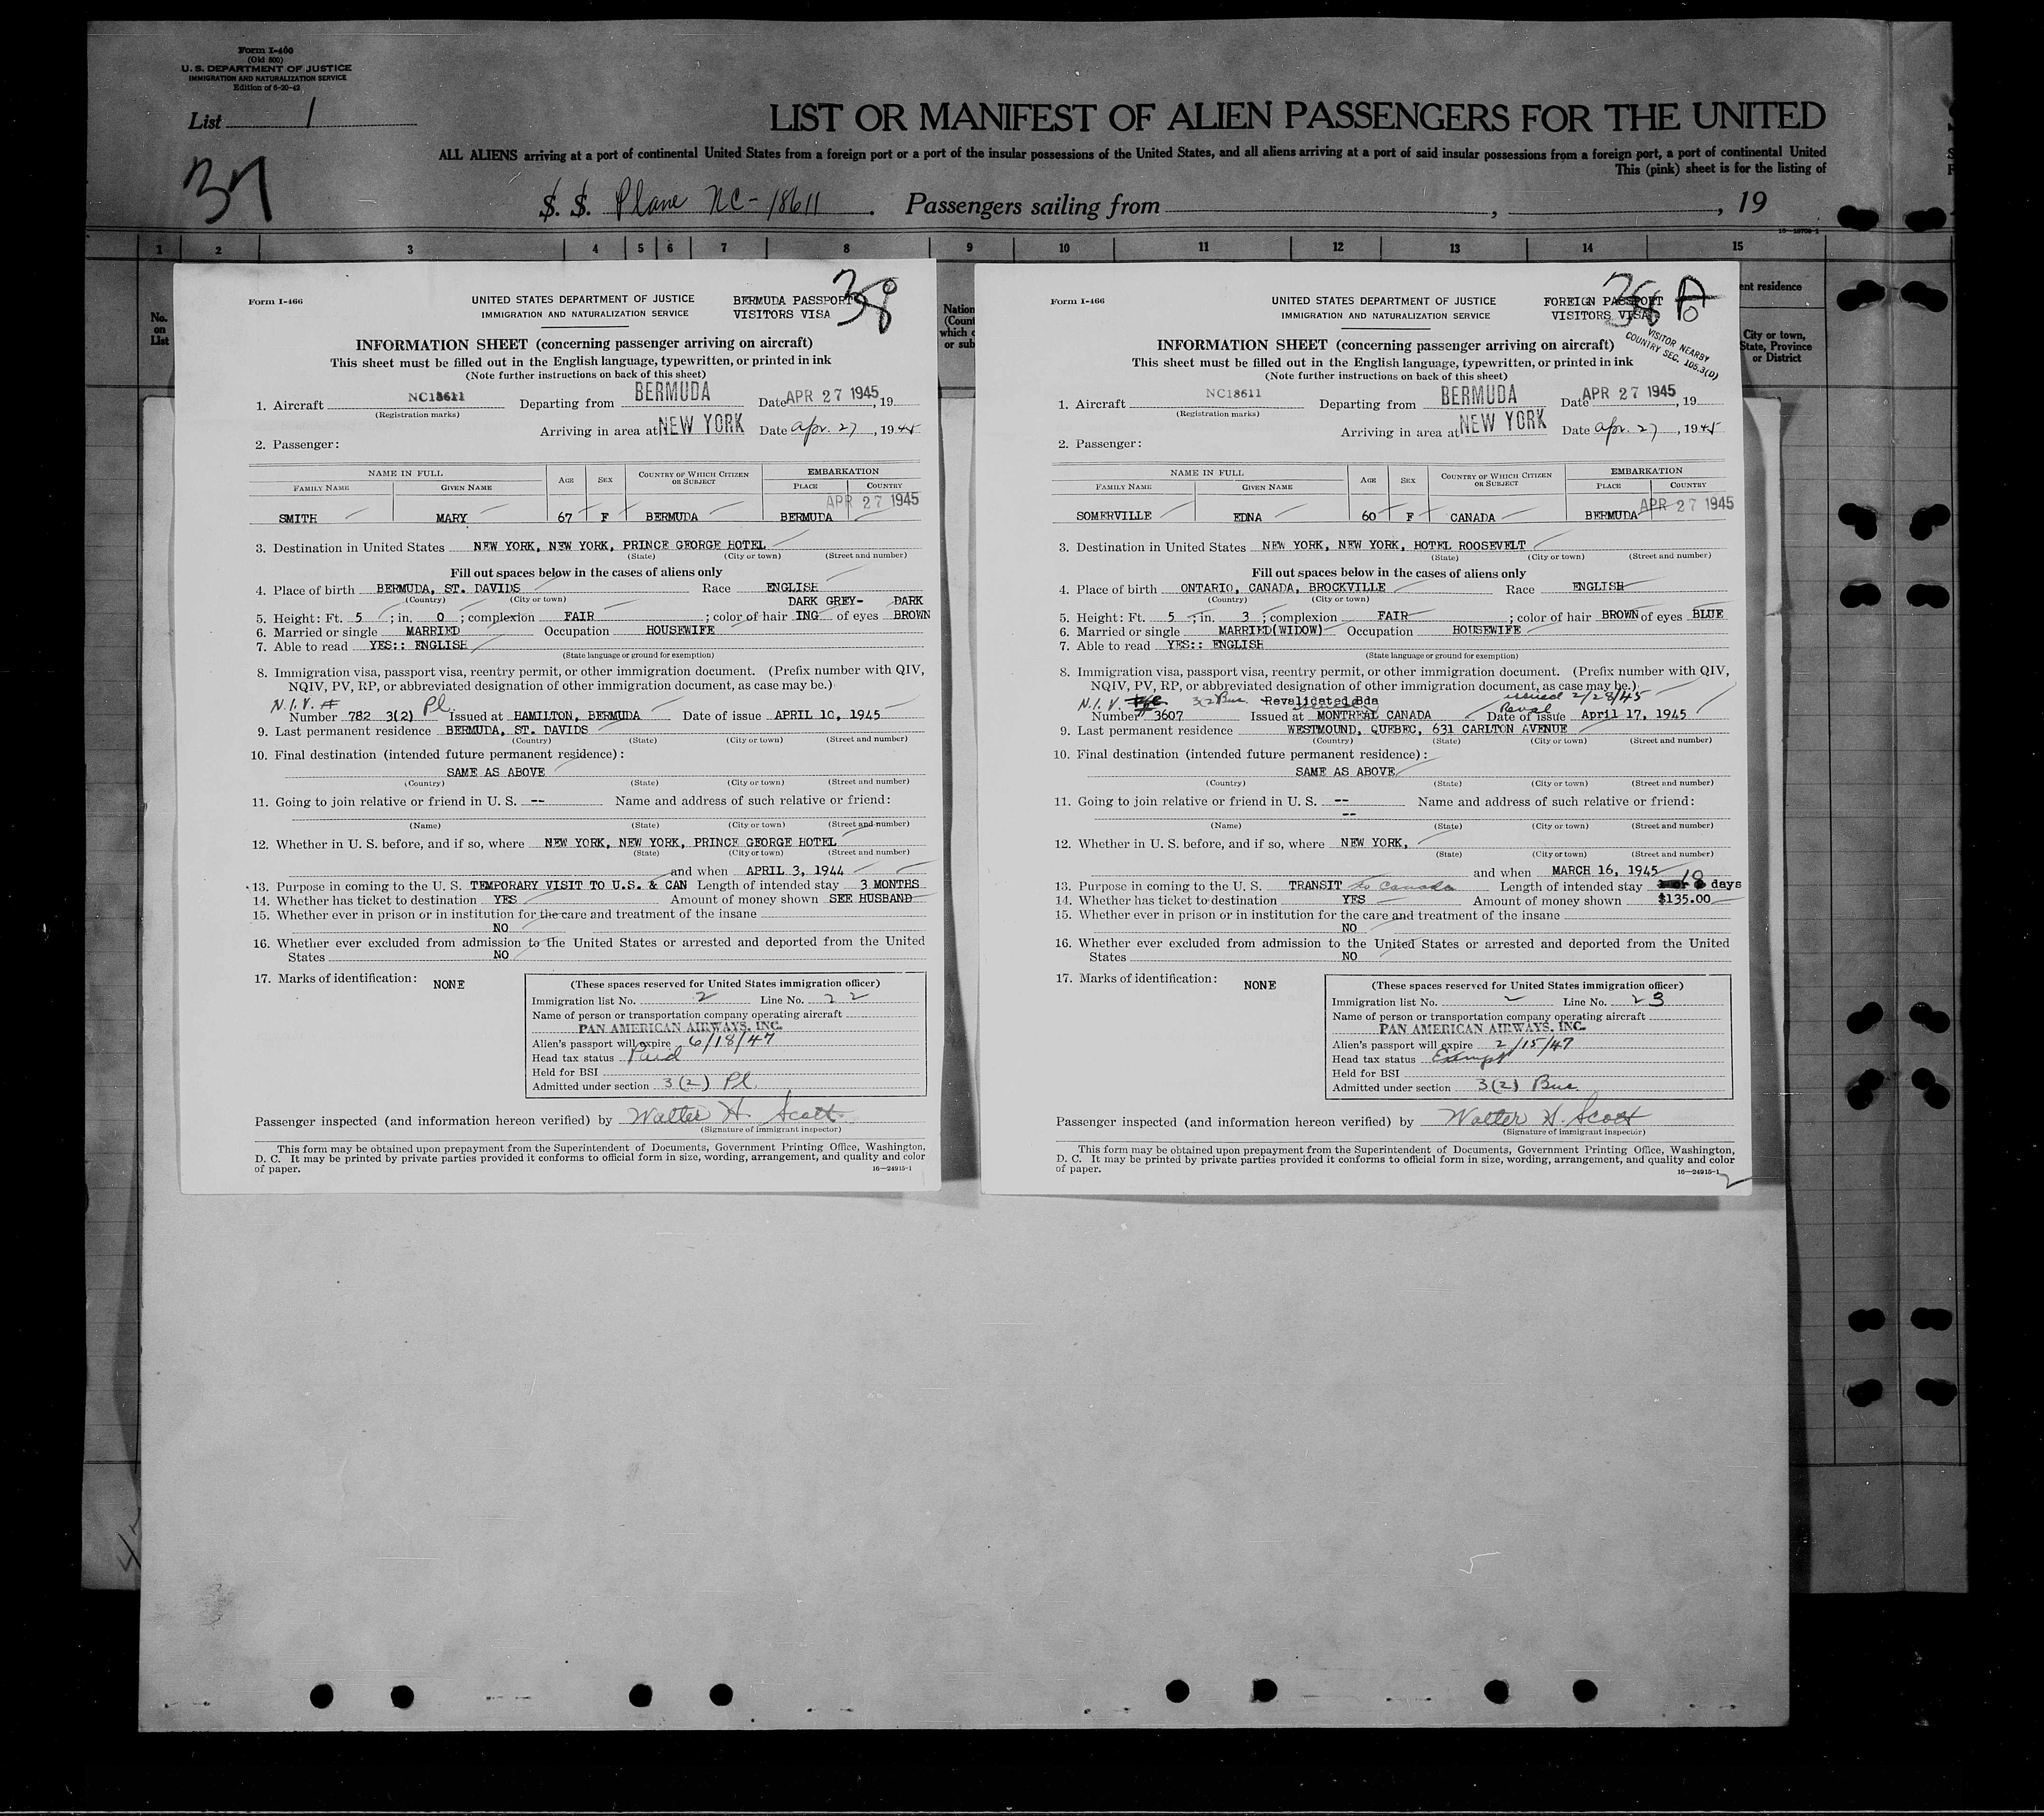 Form I-466
(Old 500)
U. S. DEPARTMENT OF JUSTICE
IMMIGRATION AND NATURALIZATION SERVICE
Edition of 6-20-42
List 1
LIST OR MANIFEST OF ALIEN PASSENGERS FOR THE UNITED
ALL ALIENS arriving at a port of continental United States from a foreign port or a port of the insular possessions of the United States, and all aliens arriving at a port of said insular possessions from a foreign port, a port of continental United
This (pink) sheet is for the listing of
37
S. S. Plane NC-18611. Passengers sailing from , , 19
1 2 3 4 5 6 7 8 9 10 11 12 13 14 15
No.
on
List
Form I-466
UNITED STATES DEPARTMENT OF JUSTICE
IMMIGRATION AND NATURALIZATION SERVICE
BERMUDA PASSPORT
VISITORS VISA
38
INFORMATION SHEET (concerning passenger arriving on aircraft)
This sheet must be filled out in the English language, typewritten, or printed in ink
(Note further instructions on back of this sheet)
1. Aircraft NC18611 Departing from BERMUDA Date APR 27 1945, 19
(Registration marks)
Arriving in area at NEW YORK Date Apr. 27, 1945
2. Passenger:
NAME IN FULL AGE SEX COUNTRY OF WHICH CITIZEN OR SUBJECT EMBARKATION
FAMILY NAME GIVEN NAME PLACE COUNTRY
APR 27 1945
SMITH MARY 67 F BERMUDA BERMUDA
3. Destination in United States NEW YORK, NEW YORK, PRINCE GEORGE HOTEL
(State) (City or town) (Street and number)
Fill out spaces below in the cases of aliens only
4. Place of birth BERMUDA, ST. DAVIDS Race ENGLISH
(Country) (City or town)
DARK GREY- DARK
5. Height: Ft. 5 ; in. 0 ; complexion FAIR ; color of hair ING of eyes BROWN
6. Married or single MARRIED Occupation HOUSEWIFE
7. Able to read YES:: ENGLISH
(State language or ground for exemption)
8. Immigration visa, passport visa, reentry permit, or other immigration document. (Prefix number with QIV,
NQIV, PV, RP, or abbreviated designation of other immigration document, as case may be.)
N.I.V. # Pl.
Number 782 3(2) Issued at HAMILTON, BERMUDA Date of issue APRIL 10, 1945
9. Last permanent residence BERMUDA, ST. DAVIDS
(Country) (State) (City or town) (Street and number)
10. Final destination (intended future permanent residence):
SAME AS ABOVE
(Country) (State) (City or town) (Street and number)
11. Going to join relative or friend in U. S. -- Name and address of such relative or friend:
(Name) (State) (City or town) (Street and number)
12. Whether in U. S. before, and if so, where NEW YORK, NEW YORK, PRINCE GEORGE HOTEL
(State) (City or town) (Street and number)
and when APRIL 3, 1944
13. Purpose in coming to the U. S. TEMPORARY VISIT TO U.S. & CAN Length of intended stay 3 MONTHS
14. Whether has ticket to destination YES Amount of money shown SEE HUSBAND
15. Whether ever in prison or in institution for the care and treatment of the insane
NO
16. Whether ever excluded from admission to the United States or arrested and deported from the United
States NO
17. Marks of identification: NONE
(These spaces reserved for United States immigration officer)
Immigration list No. 2 Line No. 22
Name of person or transportation company operating aircraft
PAN AMERICAN AIRWAYS, INC.
Alien's passport will expire 6/18/47
Head tax status Paid
Held for BSI
Admitted under section 3(2) Pl.
Passenger inspected (and information hereon verified) by Walter H. Scott
(Signature of immigrant inspector)
This form may be obtained upon prepayment from the Superintendent of Documents, Government Printing Office, Washington,
D. C. It may be printed by private parties provided it conforms to official form in size, wording, arrangement, and quality and color
of paper.
16—24915-1
Nation
(Count
which c
or sub
Form I-466
UNITED STATES DEPARTMENT OF JUSTICE
IMMIGRATION AND NATURALIZATION SERVICE
FOREIGN PASSPORT
VISITORS VISA
VISITOR NEARBY
COUNTRY SEC. 105.3(D)
INFORMATION SHEET (concerning passenger arriving on aircraft)
This sheet must be filled out in the English language, typewritten, or printed in ink
(Note further instructions on back of this sheet)
1. Aircraft NC18611 Departing from BERMUDA Date APR 27 1945, 19
(Registration marks)
Arriving in area at NEW YORK Date Apr. 27, 1945
2. Passenger:
NAME IN FULL AGE SEX COUNTRY OF WHICH CITIZEN OR SUBJECT EMBARKATION
FAMILY NAME GIVEN NAME PLACE COUNTRY
APR 27 1945
SOMERVILLE EDNA 60 F CANADA BERMUDA
3. Destination in United States NEW YORK, NEW YORK, HOTEL ROOSEVELT
(State) (City or town) (Street and number)
Fill out spaces below in the cases of aliens only
4. Place of birth ONTARIO, CANADA, BROCKVILLE Race ENGLISH
(Country) (City or town)
5. Height: Ft. 5 ; in. 3 ; complexion FAIR ; color of hair BROWN of eyes BLUE
6. Married or single MARRIED(WIDOW) Occupation HOUSEWIFE
7. Able to read YES:: ENGLISH
(State language or ground for exemption)
8. Immigration visa, passport visa, reentry permit, or other immigration document. (Prefix number with QIV,
NQIV, PV, RP, or abbreviated designation of other immigration document, as case may be.)
issued 2/28/45
N.I.V. # 3(2) Bus. Revalidated Bda
Reval
Number 3607 Issued at MONTREAL CANADA Date of issue April 17, 1945
9. Last permanent residence WESTMOUND, QUEBEC, 631 CARLTON AVENUE
(Country) (State) (City or town) (Street and number)
10. Final destination (intended future permanent residence):
SAME AS ABOVE
(Country) (State) (City or town) (Street and number)
11. Going to join relative or friend in U. S. -- Name and address of such relative or friend:
--
(Name) (State) (City or town) (Street and number)
12. Whether in U. S. before, and if so, where NEW YORK,
(State) (City or town) (Street and number)
and when MARCH 16, 1945
13. Purpose in coming to the U. S. TRANSIT to Canada Length of intended stay 18 days
14. Whether has ticket to destination YES Amount of money shown $135.00
15. Whether ever in prison or in institution for the care and treatment of the insane
NO
16. Whether ever excluded from admission to the United States or arrested and deported from the United
States NO
17. Marks of identification: NONE
(These spaces reserved for United States immigration officer)
Immigration list No. 2 Line No. 23
Name of person or transportation company operating aircraft
PAN AMERICAN AIRWAYS, INC.
Alien's passport will expire 2/15/47
Head tax status Exempt
Held for BSI
Admitted under section 3(2) Bus.
Passenger inspected (and information hereon verified) by Walter H. Scott
(Signature of immigrant inspector)
This form may be obtained upon prepayment from the Superintendent of Documents, Government Printing Office, Washington,
D. C. It may be printed by private parties provided it conforms to official form in size, wording, arrangement, and quality and color
of paper.
16—24915-1
2
ent residence
City or town,
State, Province
or District